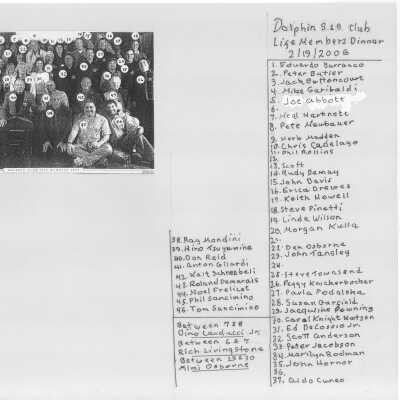 Dolphin S.&B. Club
Life Members Dinner
2/19/2006
1. Eduardo Barranco
2. Peter Butler
3. Jack Bettencourt
4. Mike Garibaldi
5. Joe Abbott
6.
7. Neil Hartnett
8. Pete Neubauer
9. Herb Madden
10. Chris Cadelago
11. Phil Rollins
12.
13. Scott
14. Rudy Demay
15. John Davis
16. Erica Drewes
17. Keith Howell
18. Steve Pinetti
19. Linde Wilson
20. Morgan Kulla
21.
22. Den Osborne
23. John Tansley
24.
25. Steve Townsend
26. Peggy Knickerbocker
27. Paula Podolsha
28. Susan Garfield
29. Jacquline Penning
30. Carol Knight Watson
31. Ed DeCossio Jr.
32. Scott Anderson
33. Peter Jacobson
34. Marilyn Rodman
35. John Hornor
36.
37. Aldo Cuneo
38. Ray Mondini
39. Hiro Tsuyamine
40. Don Reid
41. Anton Gilardi
42. Walt Schneebeli
43. Roland Demarais
44. Noel Frelicot
45. Phil Sancimino
46. Tom Sancimino
Between 7&8
Dino Landucci Jr.
Between 6&7
Rich Livingstone
Between 29&30
Mimi Osborne